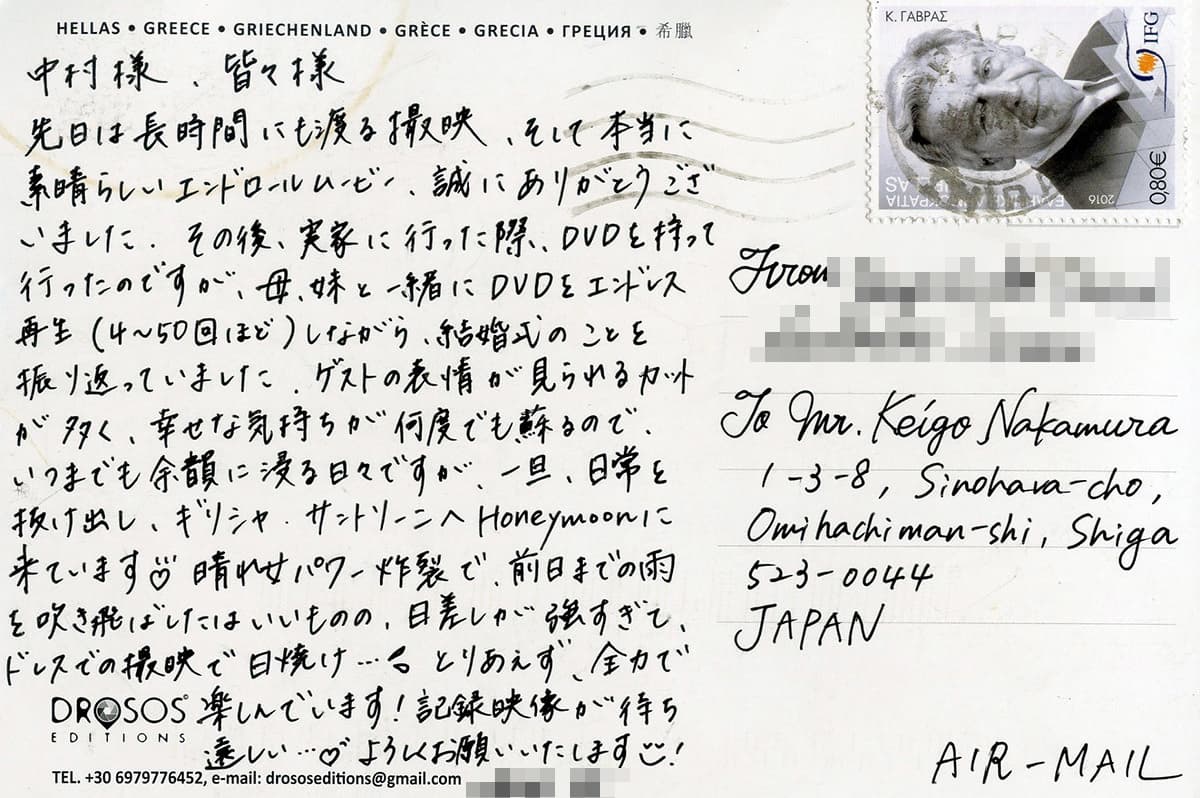 HELLAS • GREECE • GRIECHENLAND • GRÈCE • GRECIA • ГРЕЦИЯ • 希臘
中村様、皆々様
先日は長時間にも渡る撮映、そして本当に
素晴らしいエンドロールムービー、誠にありがとうござ
いました. その後、実家に行った際、DVDを持って
行ったのですが、母、妹と一緒にDVDをエンドレス
再生(4〜50回ほど)しながら、結婚式のことを
振り返っていました. ゲストの表情が見られるカット
が多く、幸せな気持ちが何度でも蘇るので、
いつまでも余韻に浸る日々ですが、一旦、日常を
抜け出し、ギリシャ・サントリーニへHoneymoonに
来ています♡ 晴れ女パワー炸裂で、前日までの雨
を吹き飛ばしたはいいものの、日差しが強すぎて、
ドレスでの撮映で日焼け… とりあえず、全力で
楽しんでいます! 記録映像が待ち
遠しい…♡ よろしくお願いいたします!
DROSOS
EDITIONS
TEL. +30 6979776452, e-mail: drososeditions@gmail.com
Κ. ΓΑΒΡΑΣ
IFG
0,80€
2016
ΕΛΛΗΝΙΚΗ ΔΗΜΟΚΡΑΤΙΑ
HELLAS
From
To Mr. Keigo Nakamura
1-3-8, Sinohara-cho,
Omihachiman-shi, Shiga
523-0044
JAPAN
AIR-MAIL